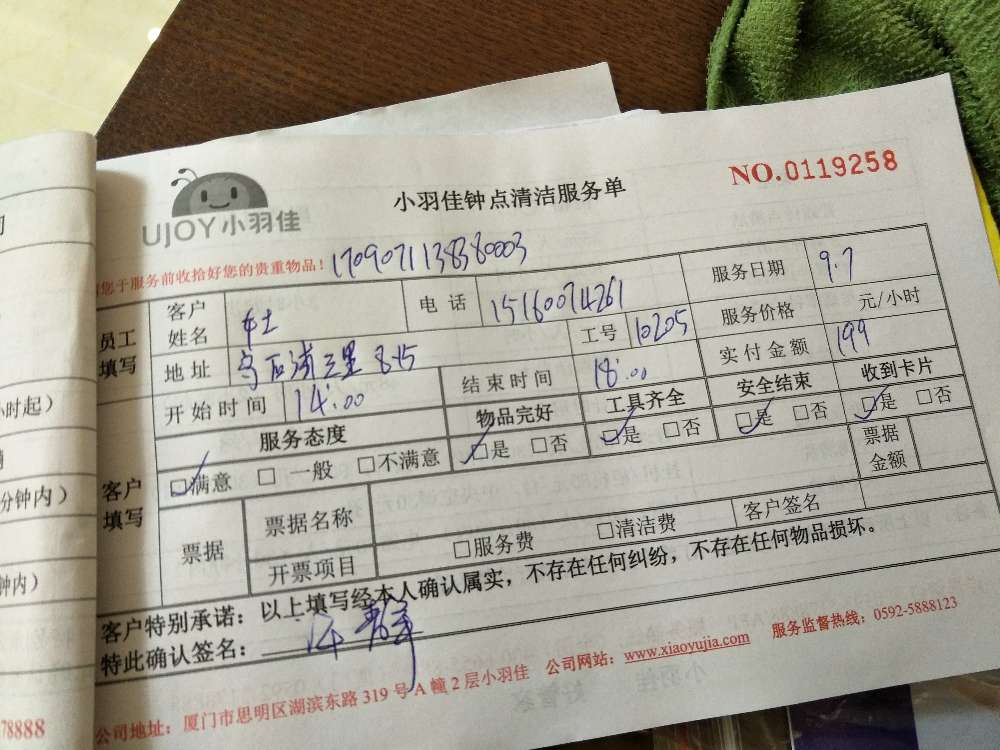 UJOY小羽佳
小羽佳钟点清洁服务单
NO.0119258
您于服务前收拾好您的贵重物品！1709071138380003
员工填写
客户姓名
电话 15160074261
服务日期 9.7
地址 3·15
工号 10205
服务价格 元/小时
开始时间 14:00
结束时间 18:00
实付金额 199
服务态度 物品完好 工具齐全 安全结束 收到卡片
客户填写
☑满意 □一般 □不满意 ☑是 □否 ☑是 □否 ☑是 □否 ☑是 □否
票据 票据名称 票据金额
开票项目 □服务费 □清洁费 客户签名
客户特别承诺：以上填写经本人确认属实，不存在任何纠纷，不存在任何物品损坏。
特此确认签名：
公司地址：厦门市思明区湖滨东路319号A幢2层小羽佳 公司网站：www.xiaoyujia.com 服务监督热线：0592-5888123
小时起）
分钟内）
钟内）
78888